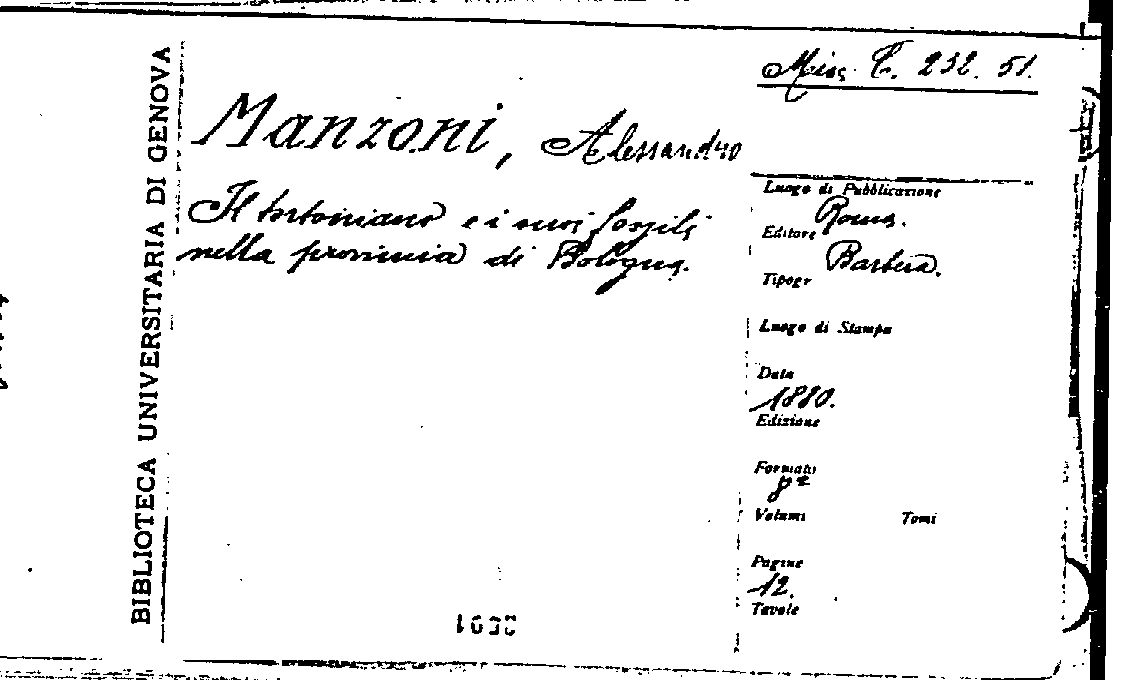 BIBLIOTECA UNIVERSITARIA DI GENOVA
Misc. C. 232. 51.
Manzoni, Alessandro
Il tortoniano e i suoi fossili
nella provincia di Bologna.
Luogo di Pubblicazione
Roma.
Editore
Barbèra.
Tipogr
Luogo di Stampa
Data
1880.
Edizione
Formato
8º
Volumi Tomi
Pagine
12.
Tavole